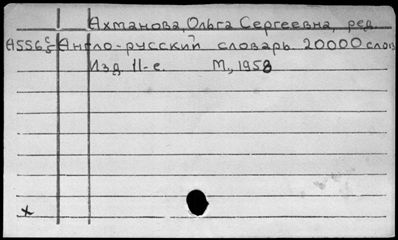 Ахманова, Ольга Сергеевна, ред.
A556 Англо-русский словарь. 20000 слов
Изд. 11-е. М., 1958
x